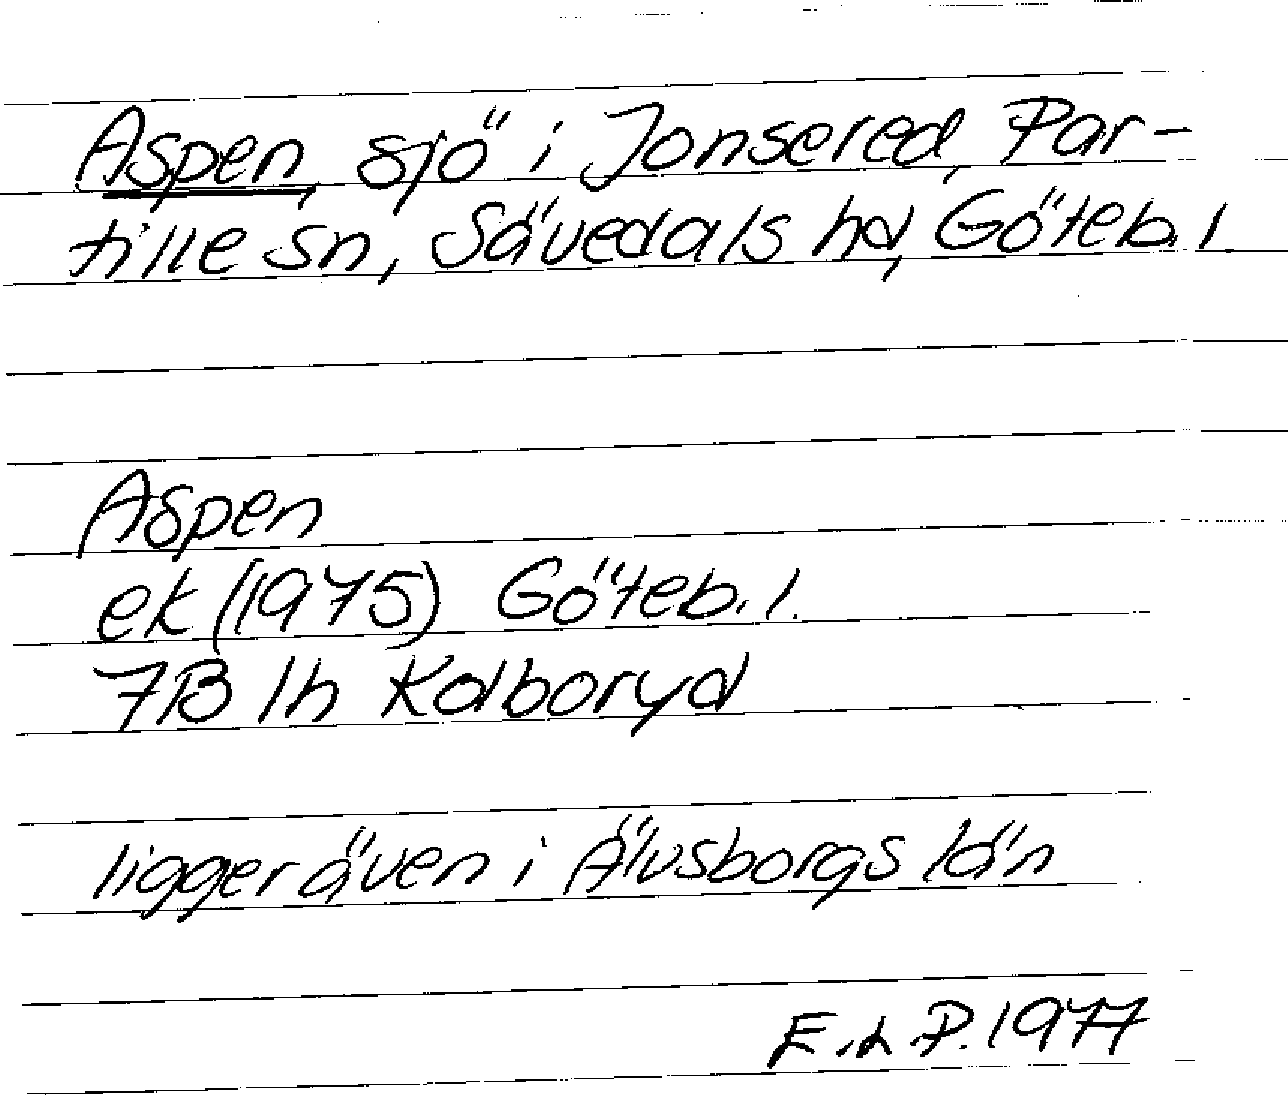 Aspen, sjö i Jonsered, Par-
tille sn, Sävedals hd, Göteb. l
Aspen
ek (1975) Göteb. l.
7B 1h Kolboryd
ligger även i Älvsborgs län
P. 1977